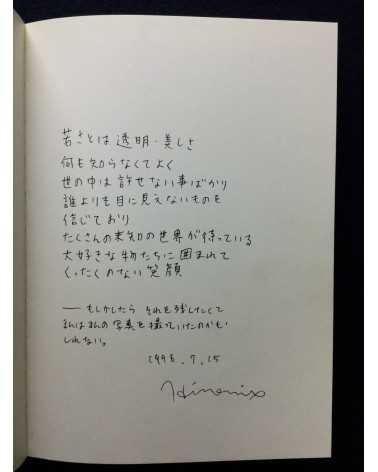 若さとは 透明・美しさ
何も知らなくてよく
世の中は 許せない事ばかり
誰よりも目に見えないものを
信じており
たくさんの未知の世界が待っている
大好きな物たちに囲まれて
くったくのない 笑顔
―もしかしたら それを残したくて
私は私の写真を撮っていたのかも
しれない。
1998.7.15
Hiromix